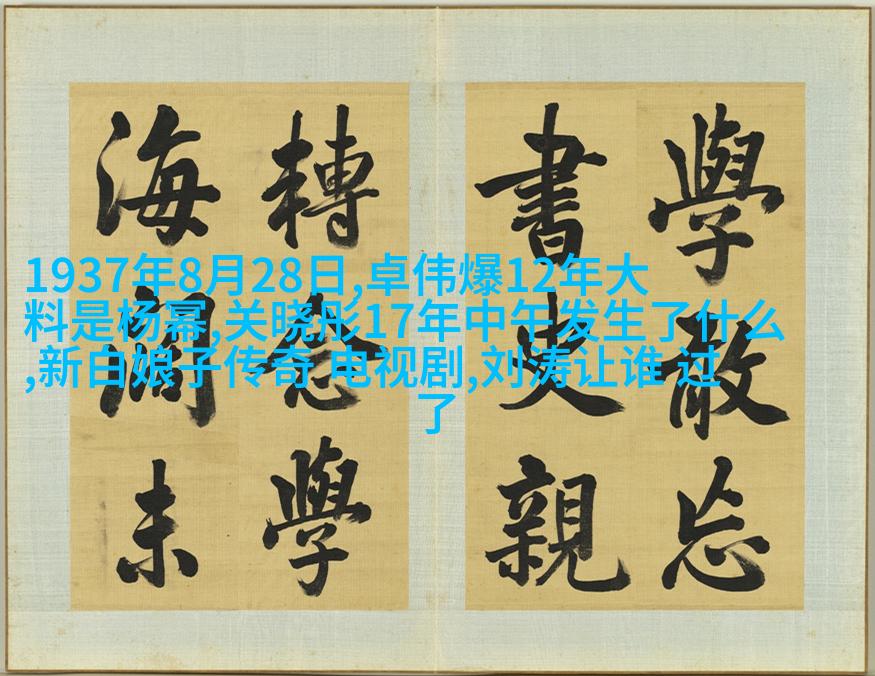 1937年8月28日,卓伟爆12年大
料是杨幂,关晓彤17年中午发生了什么
,新白娘子传奇 电视剧,刘涛让谁 过
了
學敢忘
書史親
轉念學
海濶未